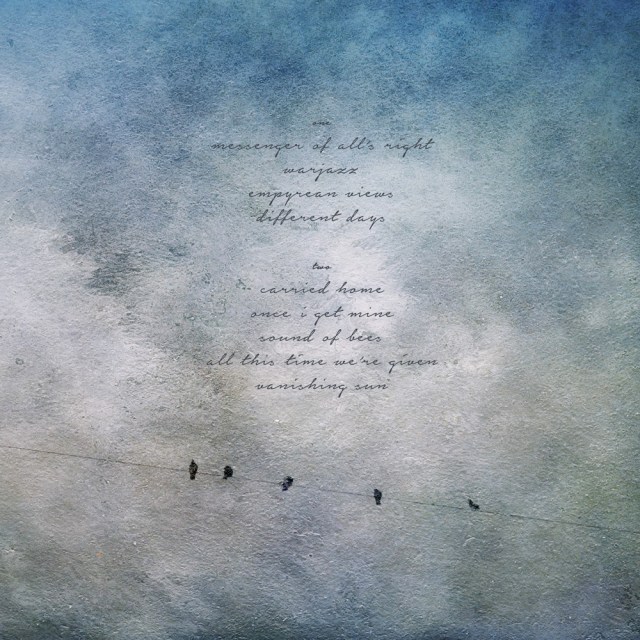 one
messenger of all's right
warjazz
empyrean views
different days
two
carried home
once i get mine
sound of bees
all this time we're given
vanishing sun